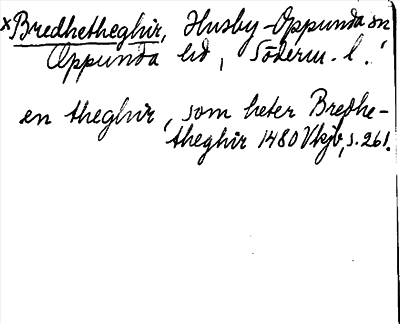 ×Bredhetheghir, Husby-Oppunda sn
Oppunda hd, Söderm. l.
en theghir, som heter Bredhe-
theghir 1480 Vkjb, s. 261.